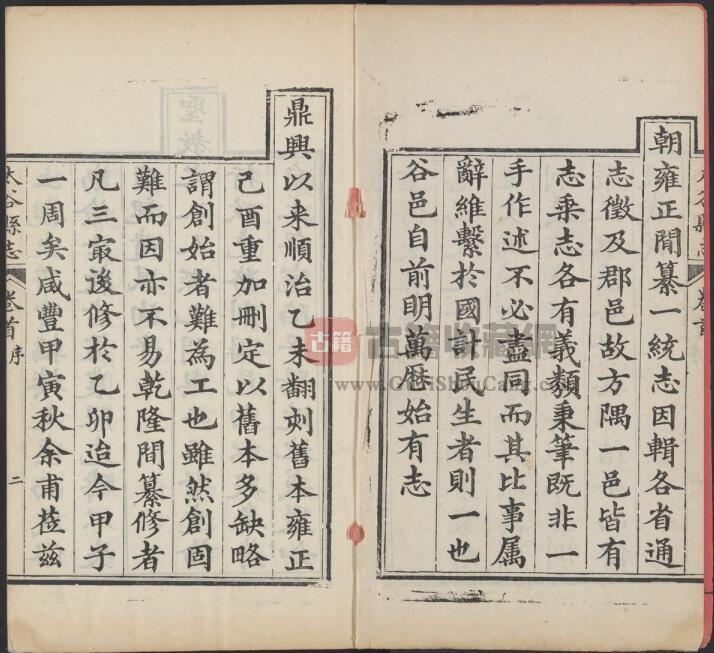 朝雍正間纂一統志因輯各省通
志徵及郡邑故方隅一邑皆有
志乘志各有義類秉筆既非一
手作述不必盡同而其比事属
辭維繫於國計民生者則一也
谷邑自前明萬厯始有志
鼎興以来順治乙未翻刻舊本雍正
己酉重加刪定以舊本多缺略
謂創始者難為工也雖然創固
難而因亦不易乾隆間纂修者
凡三㝡後修於乙卯迨今甲子
一周矣咸豐甲寅秋余甫莅兹
太谷縣志 卷首 序 二
古籍
古籍收藏網
www.GuJiShuCang.com
聖教